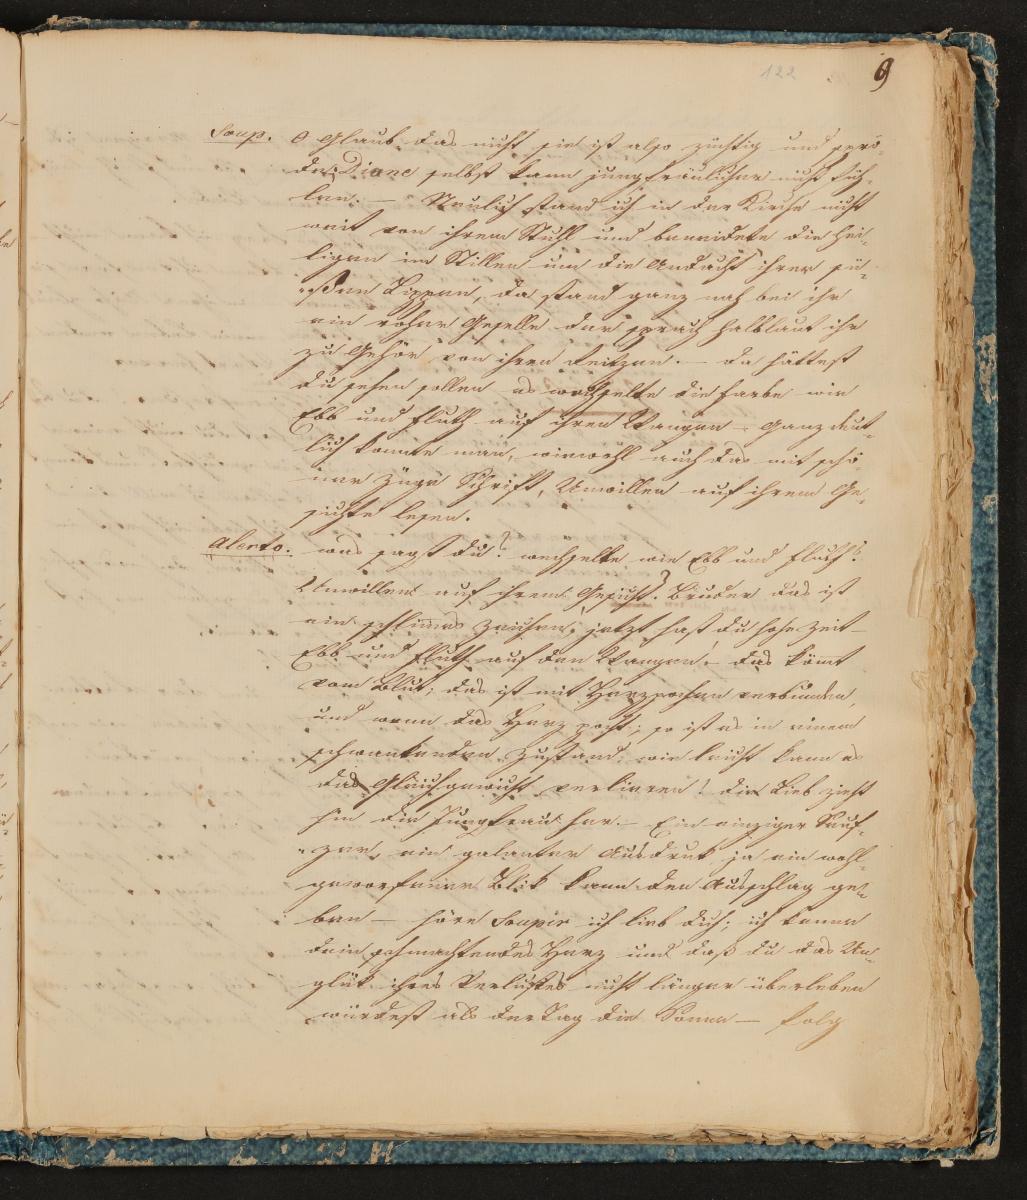 122
9
Soup. O Glaub das nicht sie ist also züchtig und sprö-
de, Diane selbst kann jungfräulicher nicht füh-
len. — Neulich stand ich in der Kirche nicht
weit von ihrem Stuhl und beneidete die Hei-
ligen im Stillen um die Andacht ihrer sü-
ßen Lippen, da stand ganz nah bei ihr
ein roher Geselle der sprach halblaut ihr
zu Gehör von ihren Reitzen. — da hättest
du sehen sollen es wechselte die Farbe wie
Ebb und Fluth auf ihren Wangen — Ganz deut-
lich konnte man, wiewohl auch das mit schö-
ner Züge Schrift, Unwillen auf ihrem Ge-
sichte lesen.
Alerto. was sagst du? wechselte wie Ebb und Fluth?
Unwillen auf ihrem Gesicht? Bruder das ist
ein schlimes Zeichen, jetzt hast du hohe Zeit —
Ebb und Fluth auf den Wangen! — das kömt
vom Blut; das ist mit Herzpochen verbunden,
und wenn das Herz pocht; so ist es in einem
schwankenden Zustand, wie leicht kann es
das Gleichgewicht verlieren! die Lieb zieht
hin die Jungfrau her. — Ein einziger Seuf-
zer, ein galanter Ausdruk, ja ein wohl-
geworfener Blik kann den Ausschlag ge-
ben — höre Soupir ich lieb dich; ich kenne
dein schmachtendes Herz und daß du das Un-
glük ihres Verlustes nicht länger überleben
würdest als der Tag die Sonne — folg